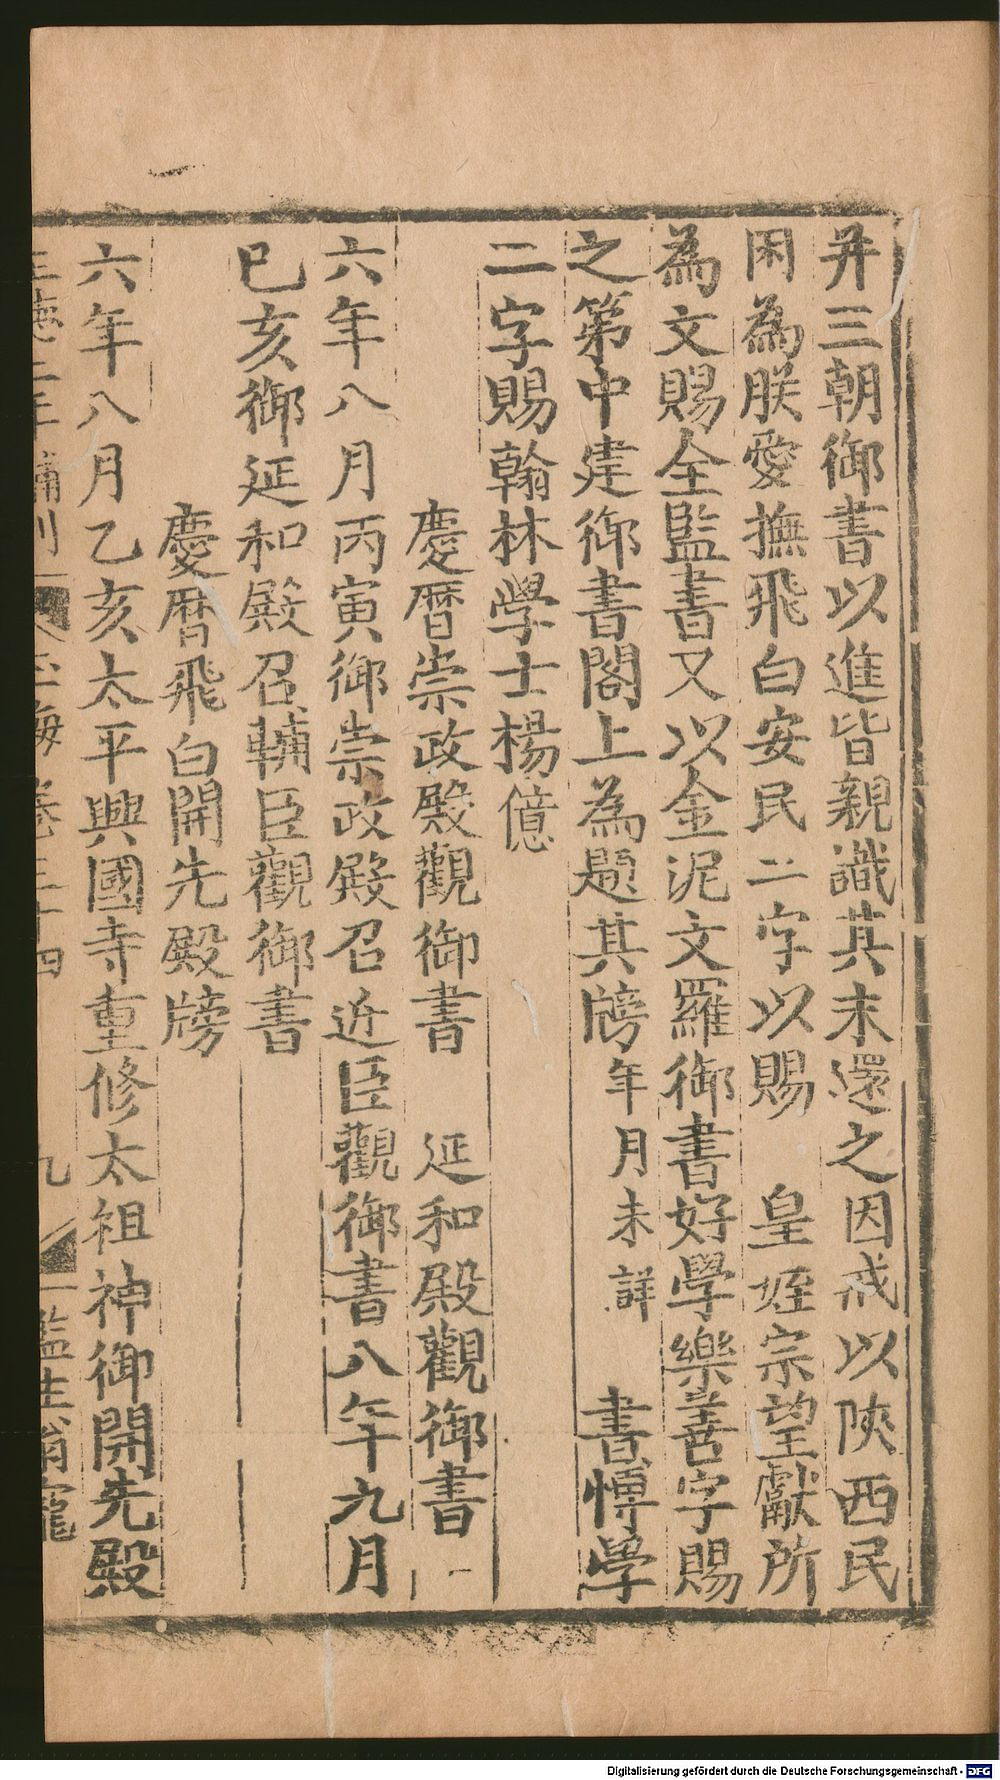 并三朝御書以進皆親識其末還之因戒以陝西民
困為朕愛撫飛白安民二字以賜　皇姪宗望獻所
為文賜全監書又以金泥文羅御書好學樂善字賜
之第中建御書閣上為題其牓年月未詳　書博學
二字賜翰林學士楊億
慶曆崇政殿觀御書　延和殿觀御書
六年八月丙寅御崇政殿召近臣觀御書八年九月
巳亥御延和殿召輔臣觀御書
慶曆飛白開先殿牓
六年八月乙亥太平興國寺重修太祖神御開先殿
年補刊　海卷三十四　九　監生
Digitalisierung gefördert durch die Deutsche Forschungsgemeinschaft - DFG